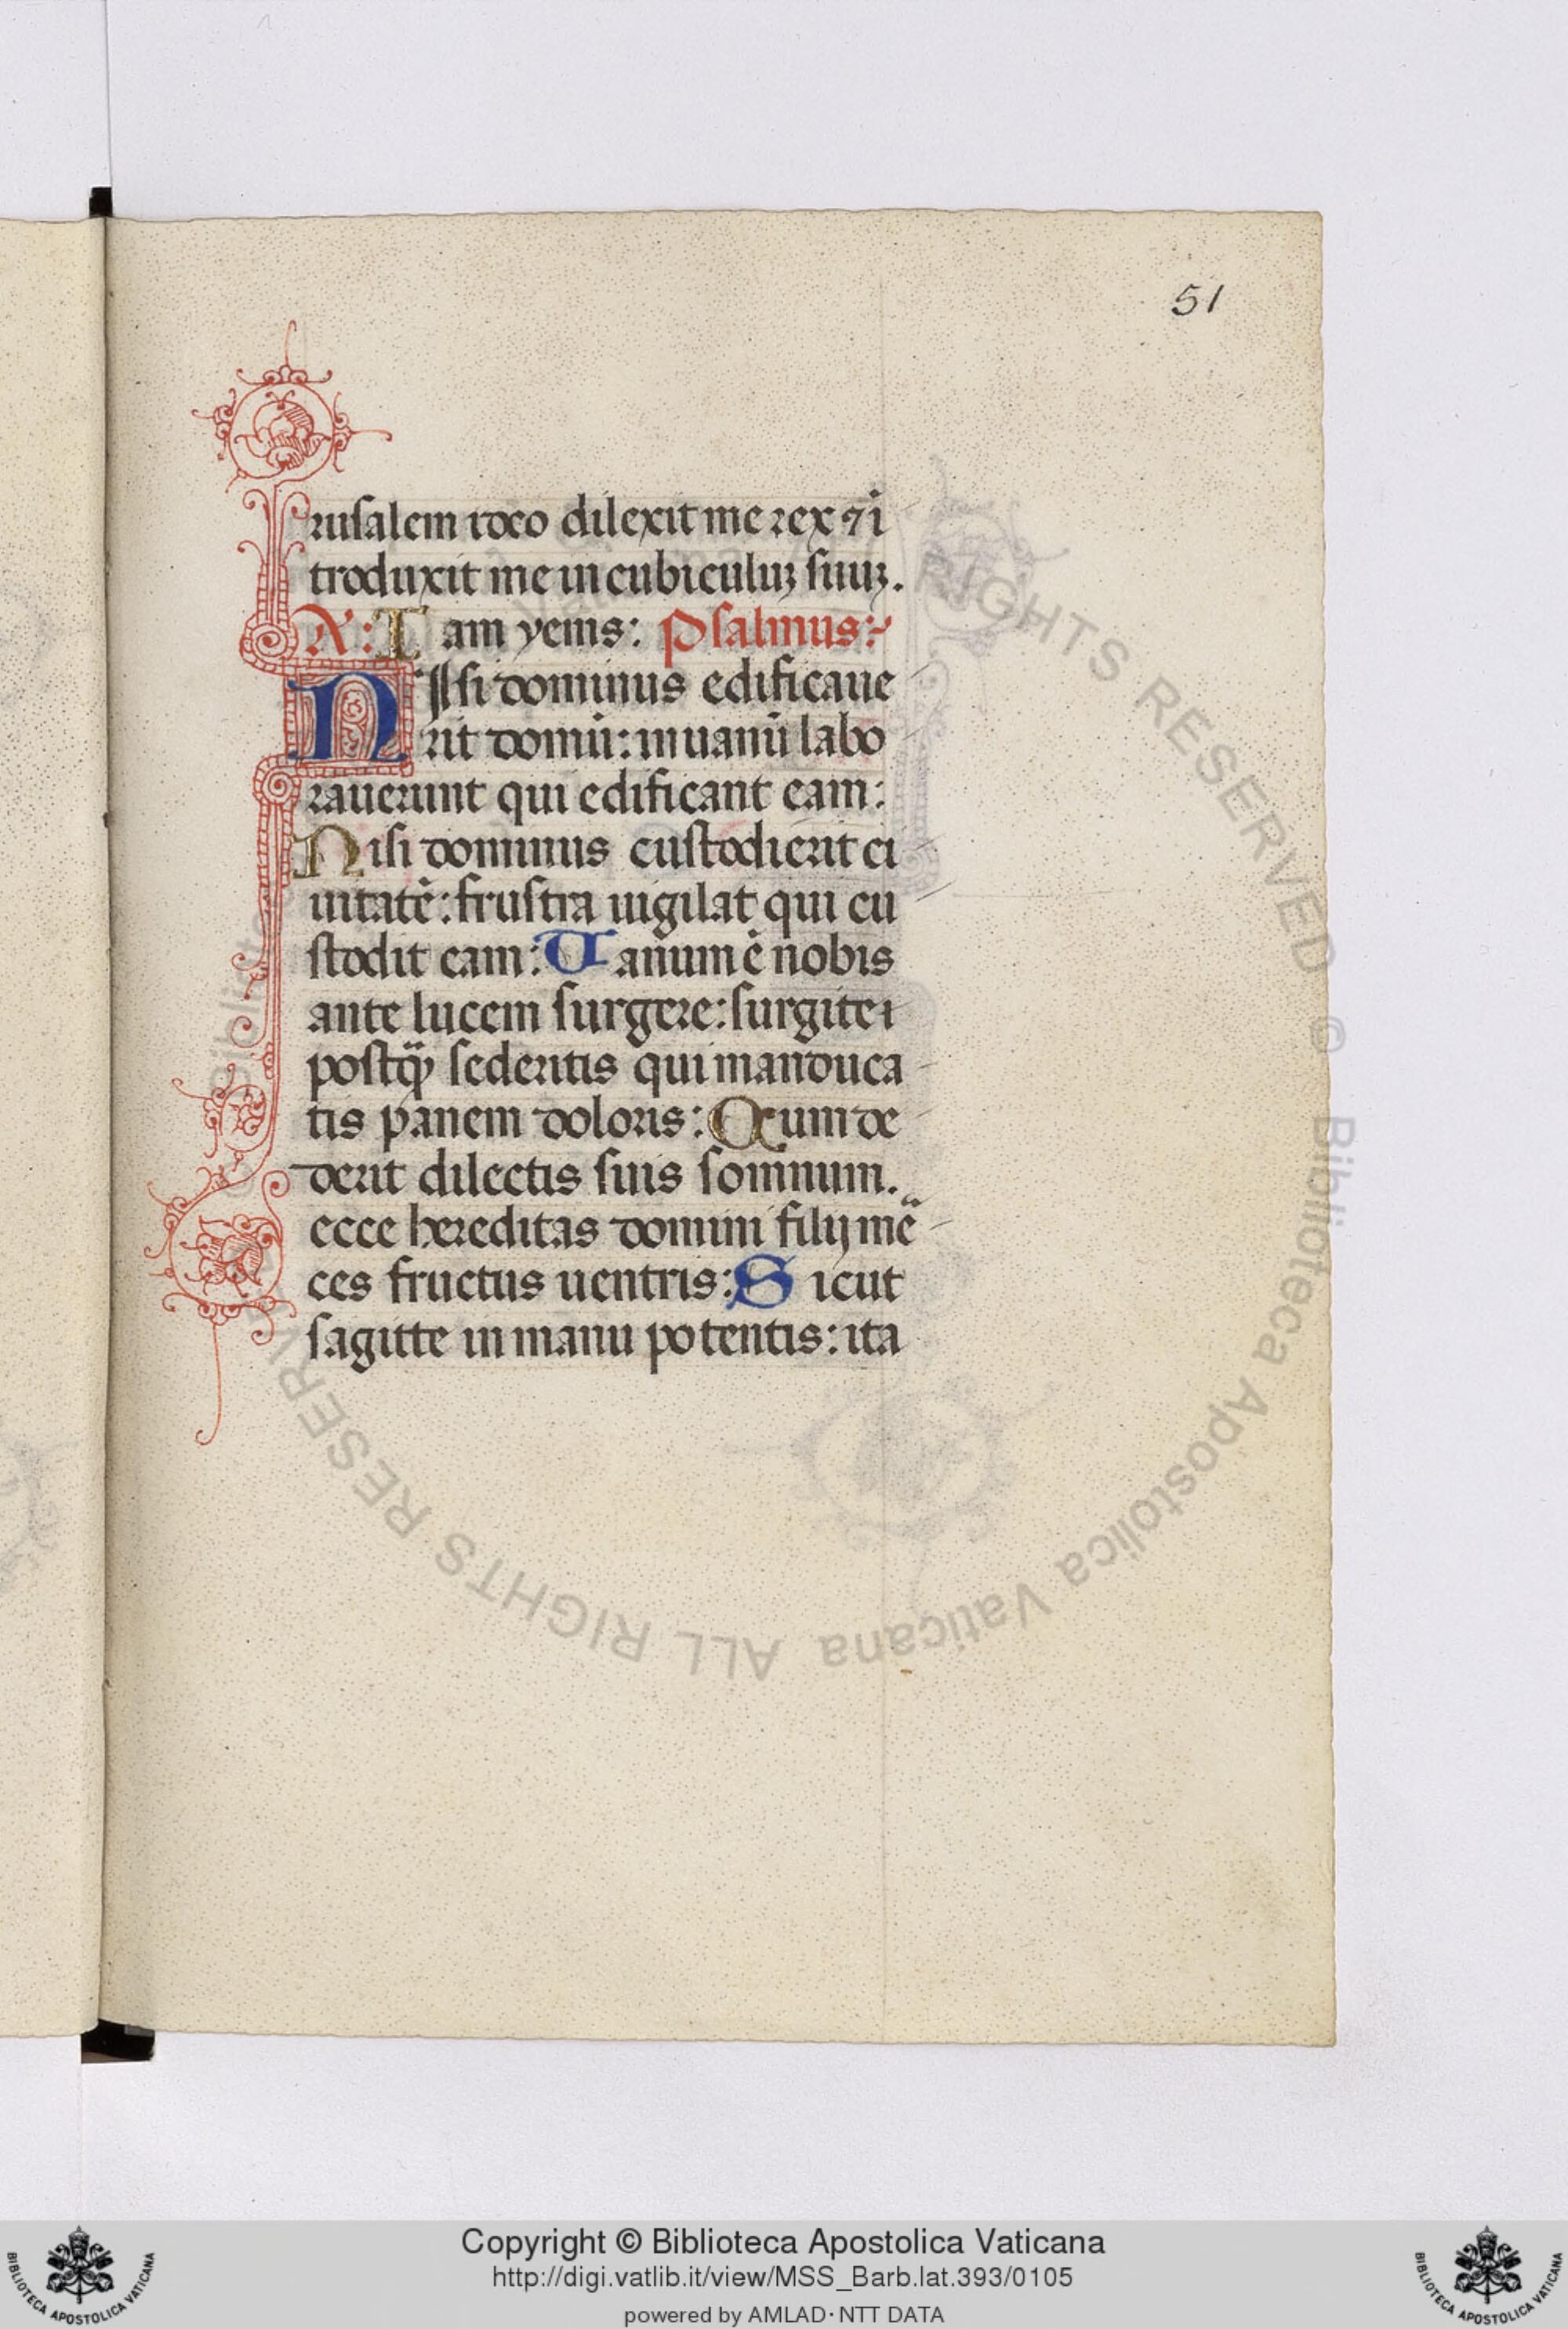 51
rusalem ioco dilexit me rex ⁊ ī
troduxit me in cubiculuꝫ suuꝫ.
A: Iam yems: Psalmus:
NIsi dominus edificaue
rit domū: in uanū labo
rauerunt qui edificant eam:
Nisi dominus custodierit ci
uitatē: frustra uigilat qui cu
stodit eam: Uanum ē nobis
ante lucem surgere: surgitei
postq̄ sederitis qui manduca
tis panem doloris: Cum de
derit dilectis suis somnum.
ecce hereditas domini filij mē
ces fructus uentris: Sicut
sagitte in manu potentis: ita
RIGHTS RESERVED © Biblioteca Apostolica Vaticana ALL RIGHTS RESERVED
Copyright © Biblioteca Apostolica Vaticana
http://digi.vatlib.it/view/MSS_Barb.lat.393/0105
powered by AMLAD·NTT DATA
BIBLIOTECA APOSTOLICA VATICANA
BIBLIOTECA APOSTOLICA VATICANA